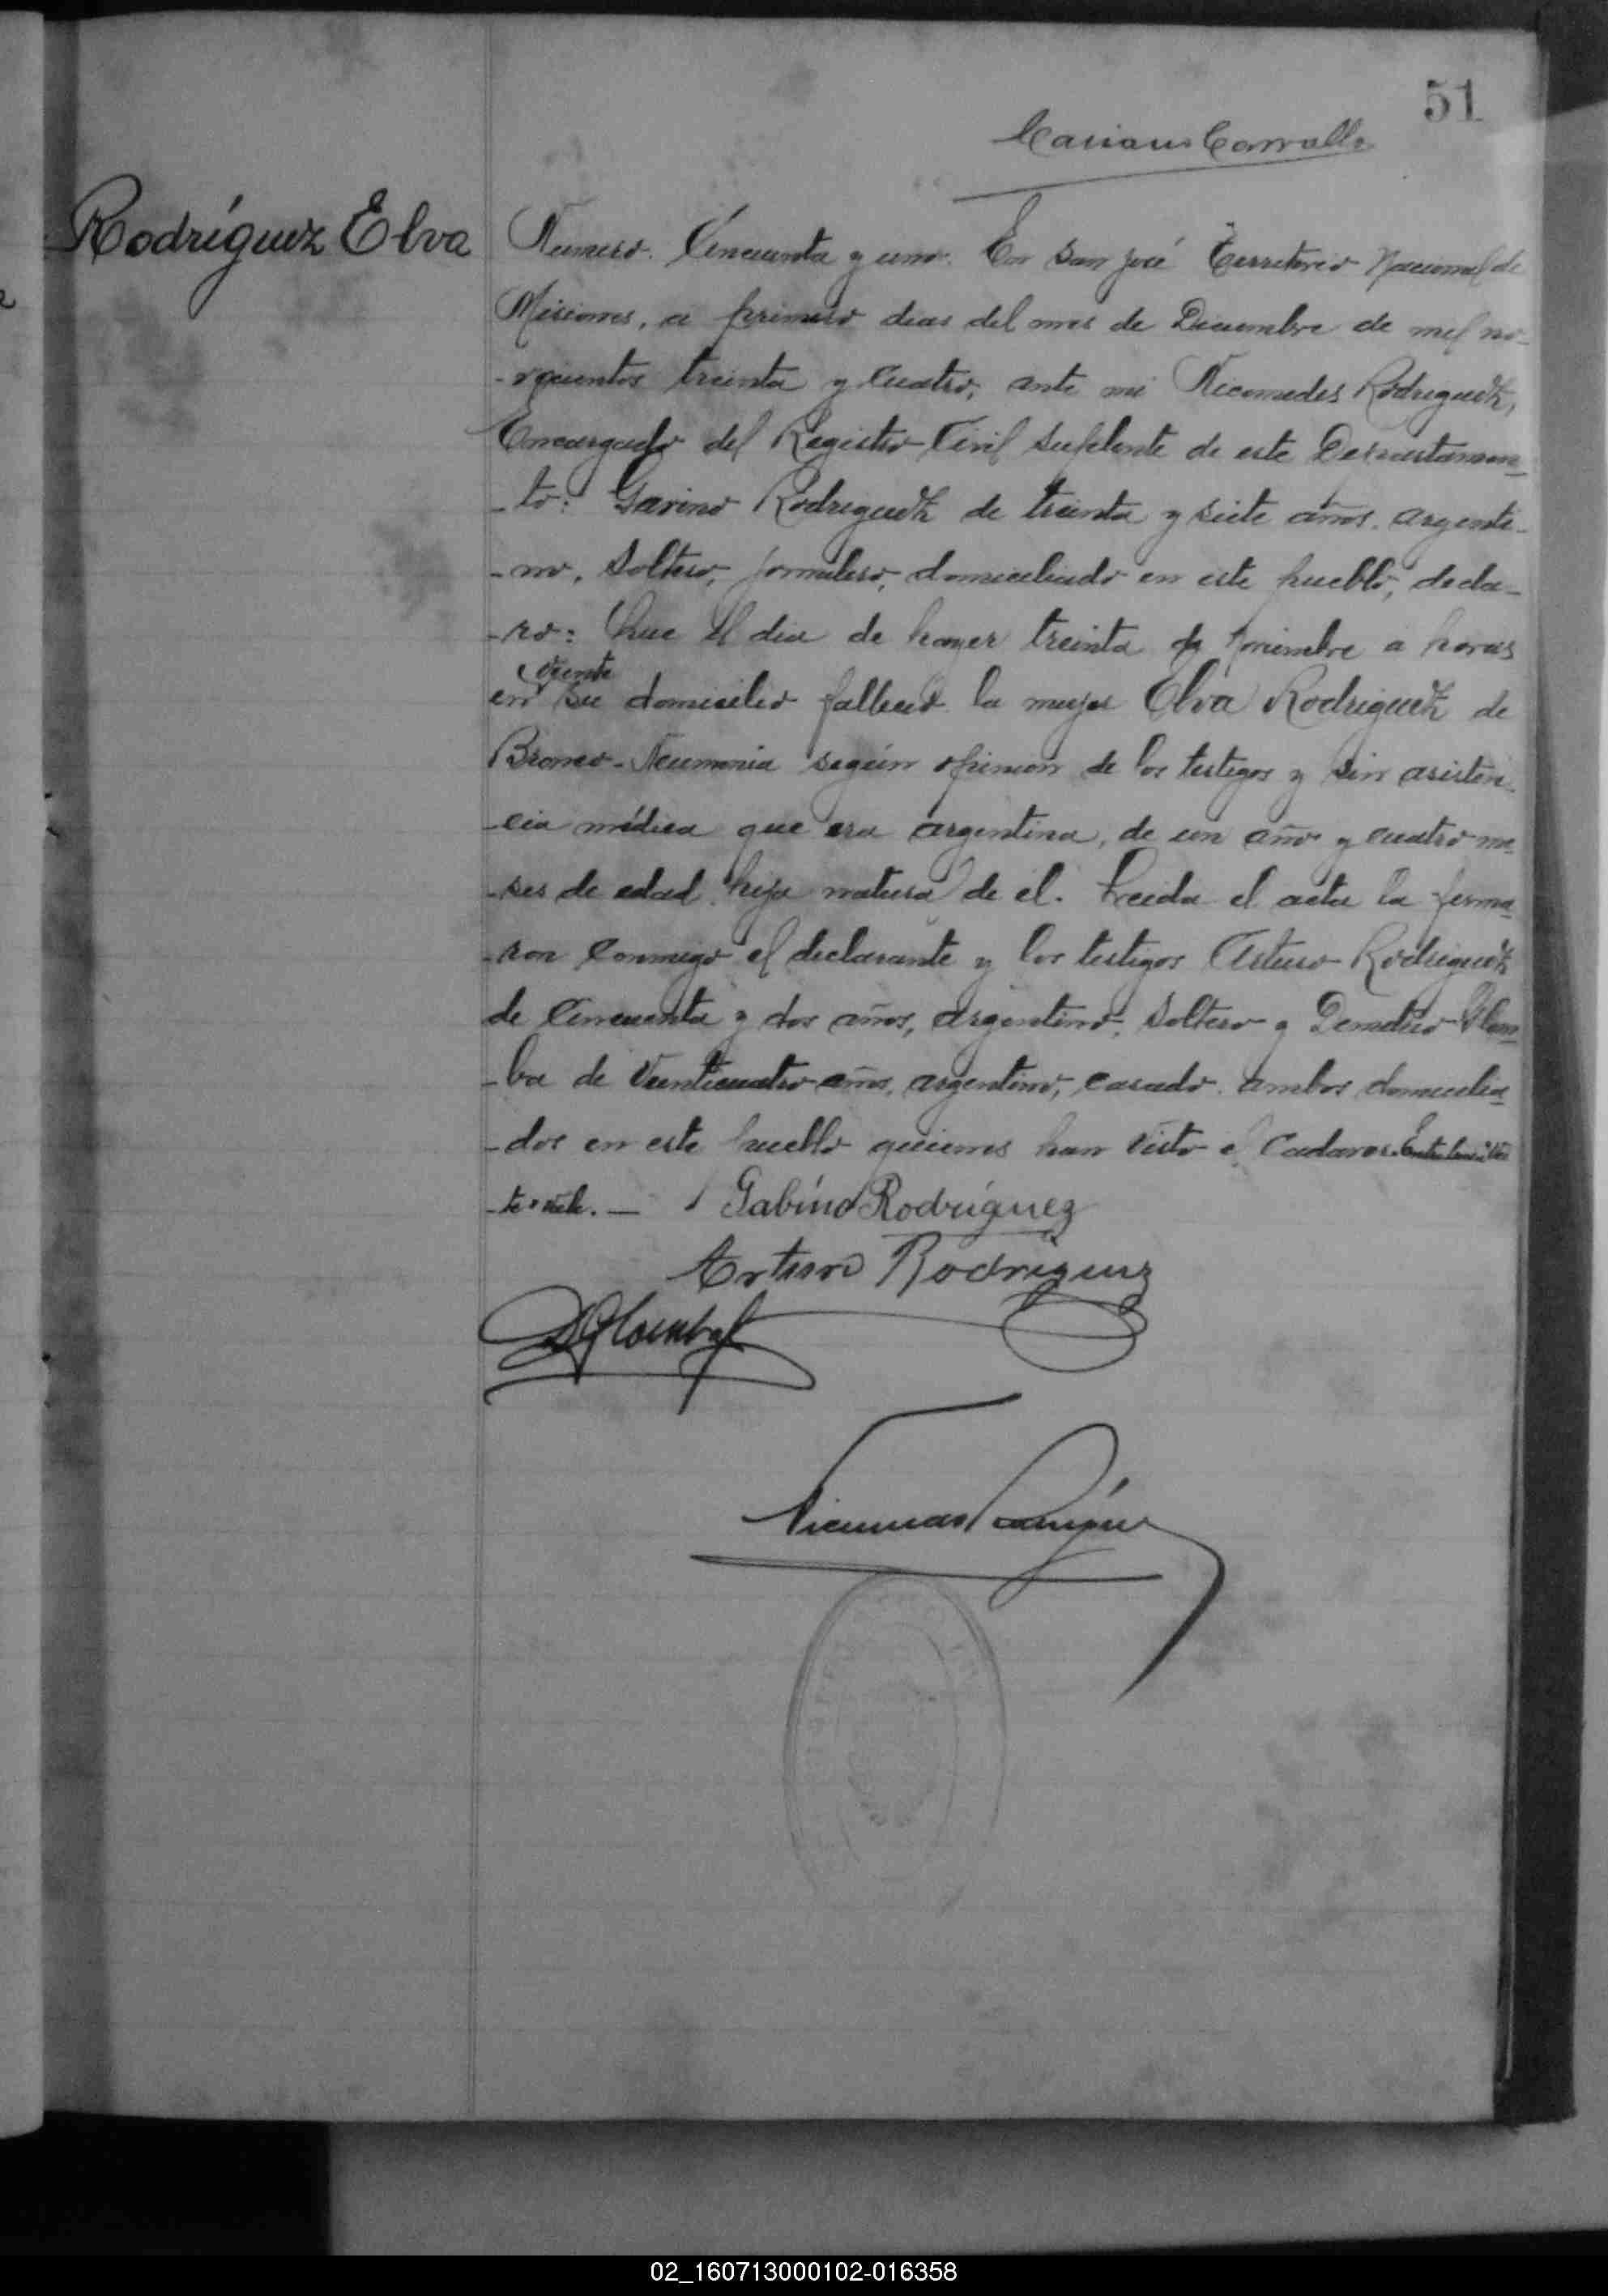 51
Rodríguez Elva
Numero. Cincuenta y uno. En San José Territorio Nacional de
Misiones, a primero dias del mes de Diciembre de mil no-
-vecientos treinta y Cuatro, ante mi Nicomedes Rodriguez,
Encargado del Registro Civil Suplente de este Departamen-
-to: Gavino Rodriguez de treinta y siete años, argenti-
-no, Soltero, jornalero, domiciliado en este pueblo, decla-
-ro: Que el dia de hayer treinta de Noviembre a horas
veinte
en su domicilio fallecio la mujer Elva Rodriguez de
Bronco-Neumonia según opinion de los testigos y sin asisten-
-cia médica que era argentina, de un año y cuatro me-
-ses de edad. hija natural de el. Leida el acta la firma-
-ron Conmigo el declarante y los testigos Arturo Rodriguez
de Cincuenta y dos años, argentino, Soltero y Demetrio
-ba de Veinticuatro años, argentino, casado. ambos domicilia-
-dos en este pueblo quienes han visto el Cadaver.
-te=vale.—
Gabíno Rodríguez
Arturo Rodriguez
02_160713000102-016358